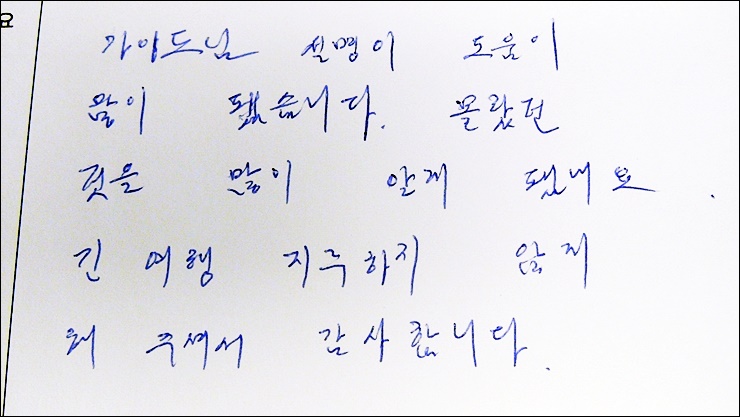 가이드님 설명이 도움이
많이 됐습니다. 몰랐던
것을 많이 알게 됐네요.
긴 여행 지루하지 않게
해 주셔서 감사합니다.